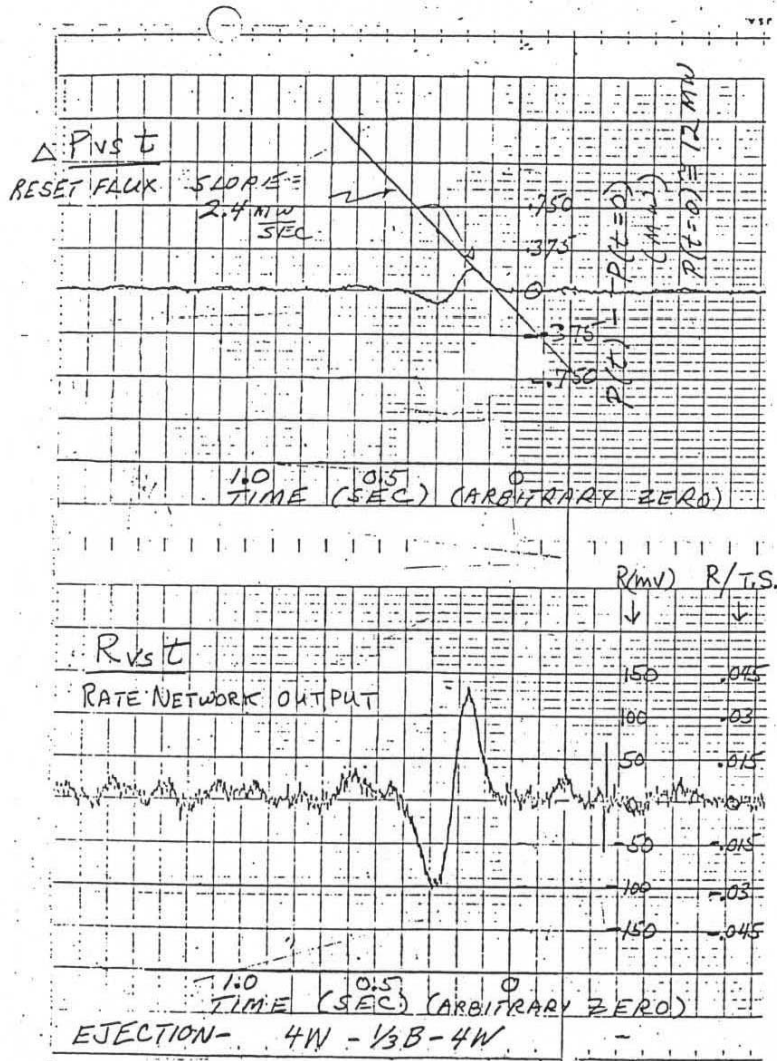 Δ P vs t
RESET FLUX
SLOPE =
2.4 MW
SEC
.750
.375
0
-.375
-.750
P(t) - P(t=0)
(MW)
P(t=0) ≅ 12 MW
1.0 0.5 0
TIME (SEC) (ARBITRARY ZERO)
R(mv) R/T.S.
↓ ↓
R vs t
RATE NETWORK OUTPUT
150 .045
100 .03
50 .015
0 0
-50 -.015
-100 -.03
-150 -.045
1.0 0.5 0
TIME (SEC) (ARBITRARY ZERO)
EJECTION- 4W - 1/3 B - 4W